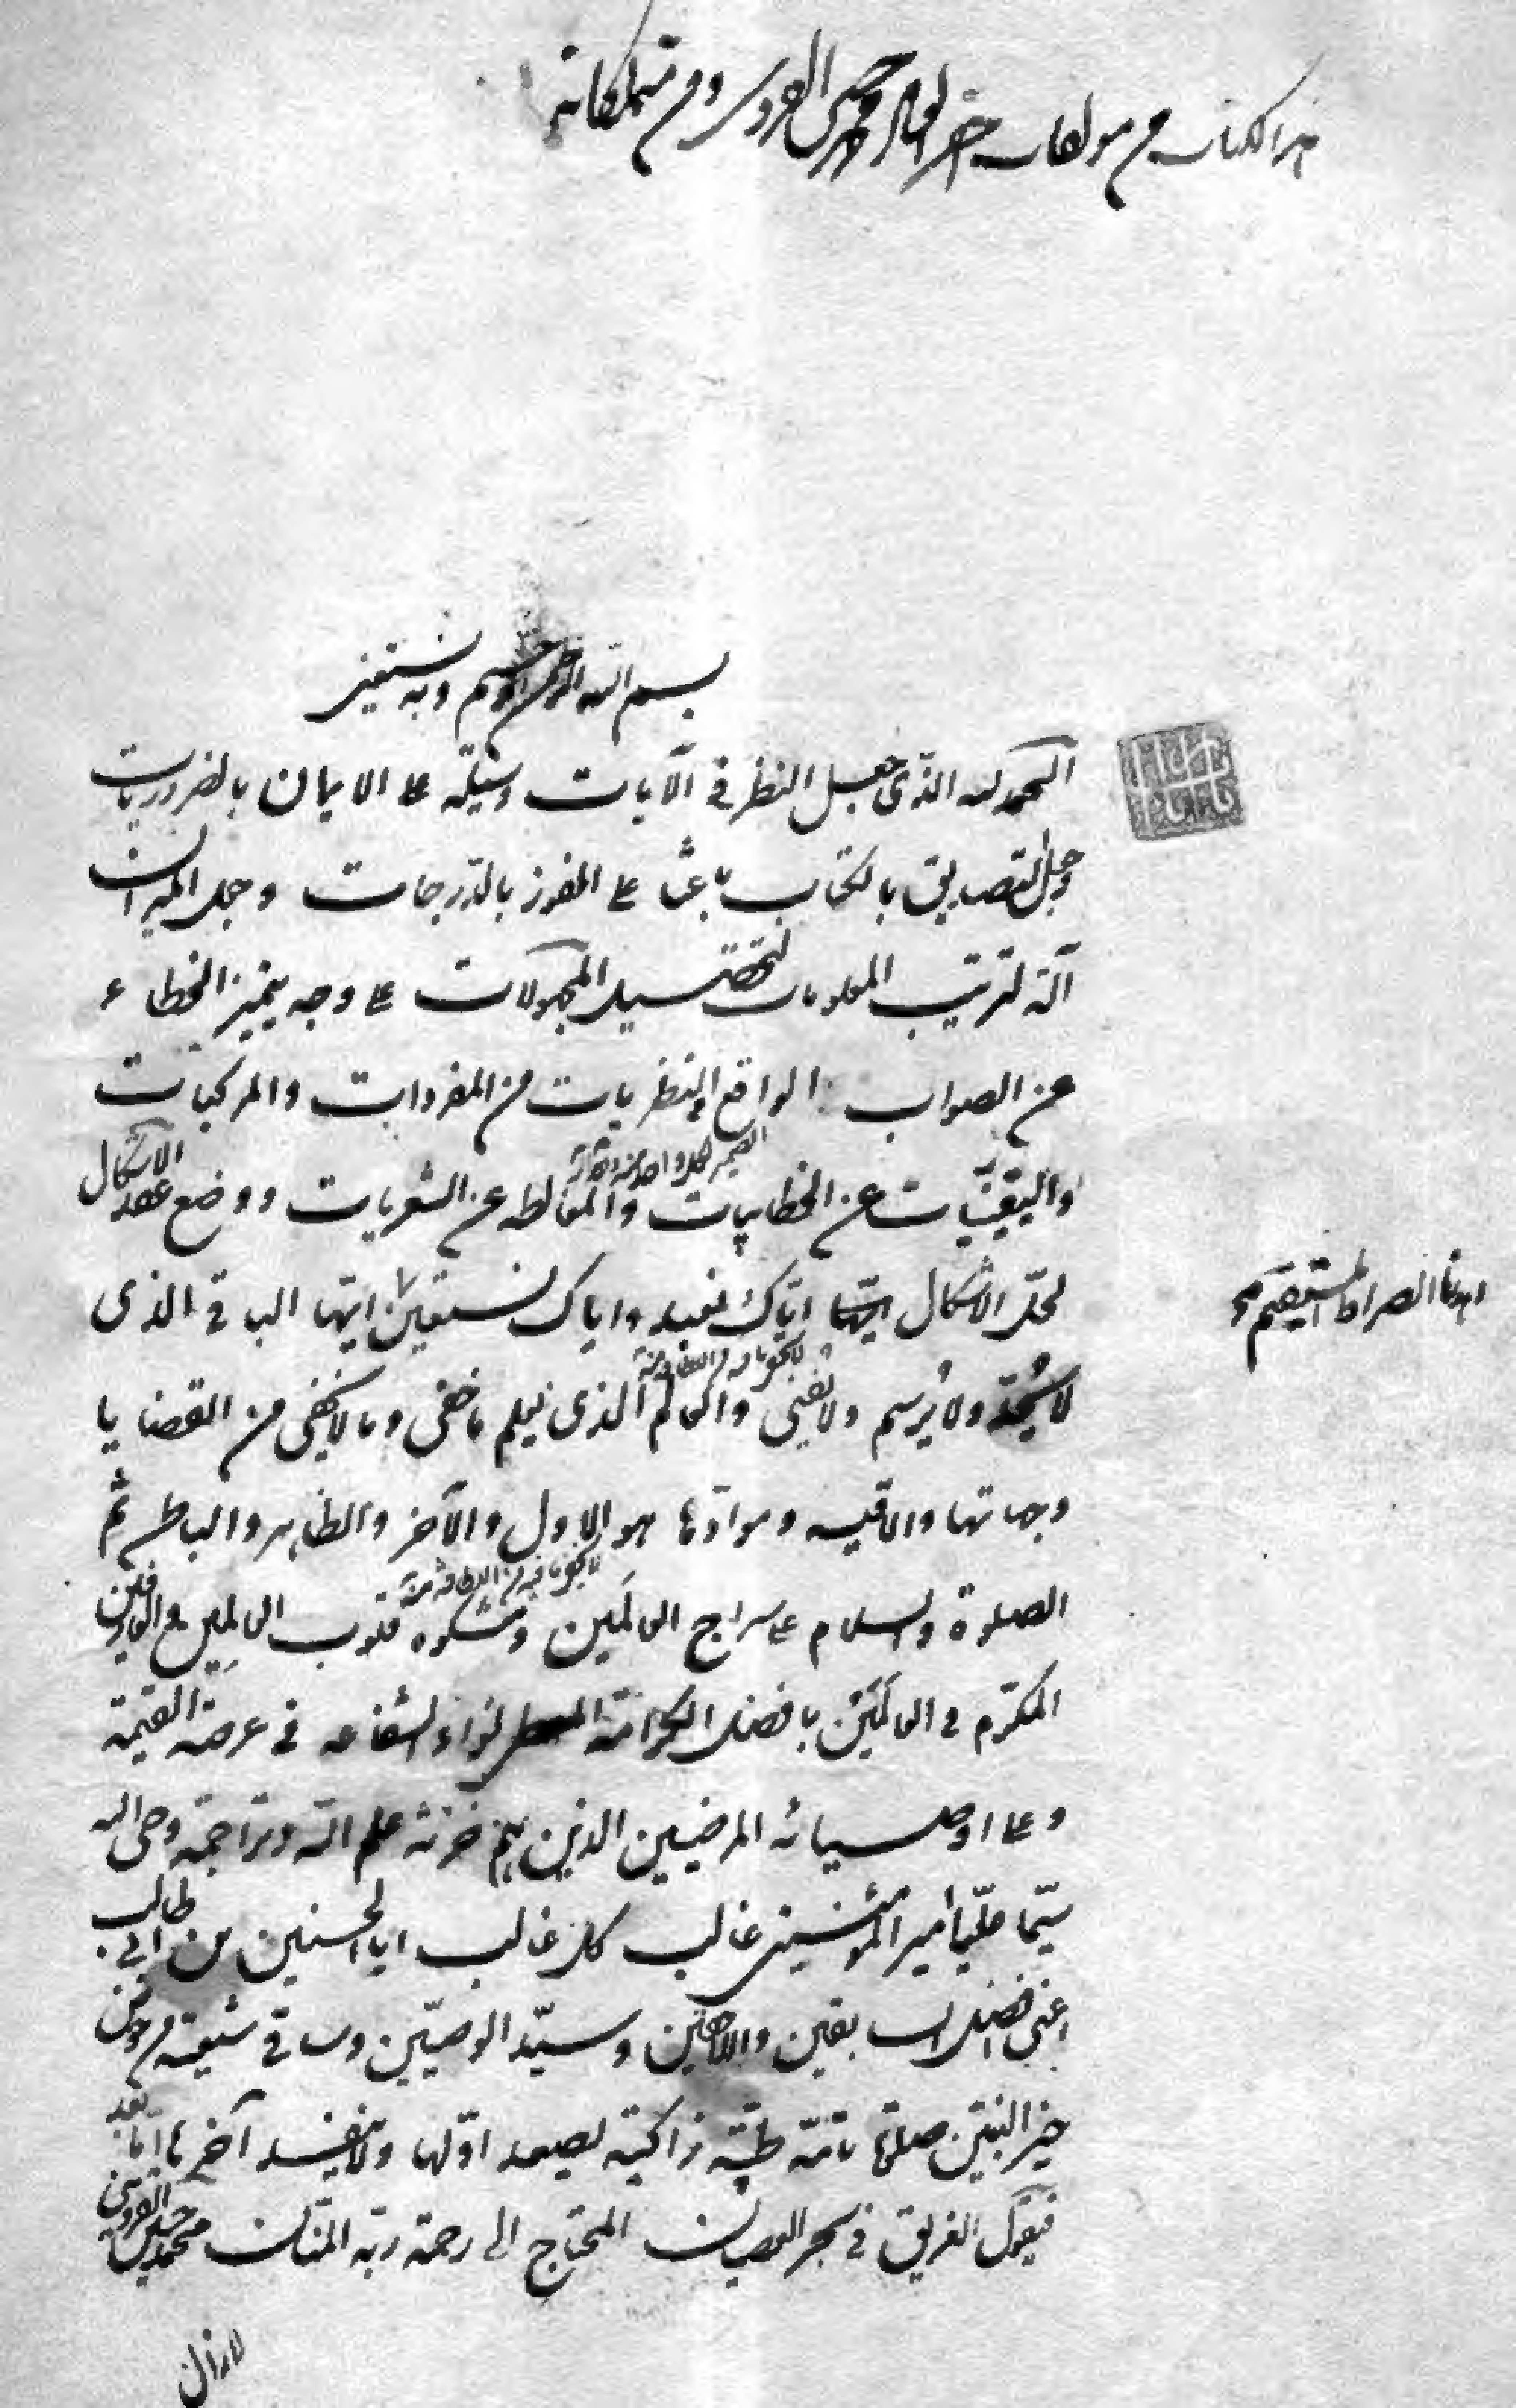 هذا الكتاب من مولفات محمد حسن القزويني ومن متملكاته
بسم الله الرحمن الرحيم وبه نستعين
الحمد لله الذى جعل النظر فى الآيات وسيلة على الايمان بالضروريات
وجعل التصديق بالكتاب باعثا على الفوز بالدرجات وجعل الميزان
آلة لترتيب المعلومات لتحصيل المجهولات على وجه يتميز الخطاء
عن الصواب الواقع فى النظريات من المفردات والمركبات
واليقينيات عن الخطابيات والمغالطه عن الشعريات ووضع عقد الاشكال
لحل الاشكال اياك نعبد واياك نستعين ايها الباقى الذى
اهدنا الصراط المستقيم
لا يُحدّ ولا يُرسم ولا يفنى والعالم الذى يعلم ما خفى وما لا يخفى من القضايا
وجهاتها والاقيسه وموادّها هو الاول والآخر والظاهر والباطن ثم
الصلوة والسلام على سراج العالَمين ومشكوة قلوب العالِمين والعارفين
المكرّم فى العالَمين بافضل الكرامة لواء الشفاعه فى عرصة القيمة
وعلى اوصيائه المرضيين الذين هم خزنة علم الله وتراجمة وحى الله
سيّما عليّا امير المؤمنين غالب كل غالب ابا الحسنين بن ابى طالب
اعنى افضل السابقين واللاحقين وسيّد الوصيّين وساقى شيعته من حوض
خير النبيين صلوة تامّة طيّبة زاكية يصعد اوّلها ولا ينفد آخرها امّا بعد
فيقول الغريق فى بحر العصيان المحتاج الى رحمة ربّه المنّان محمد حسن القزوينى